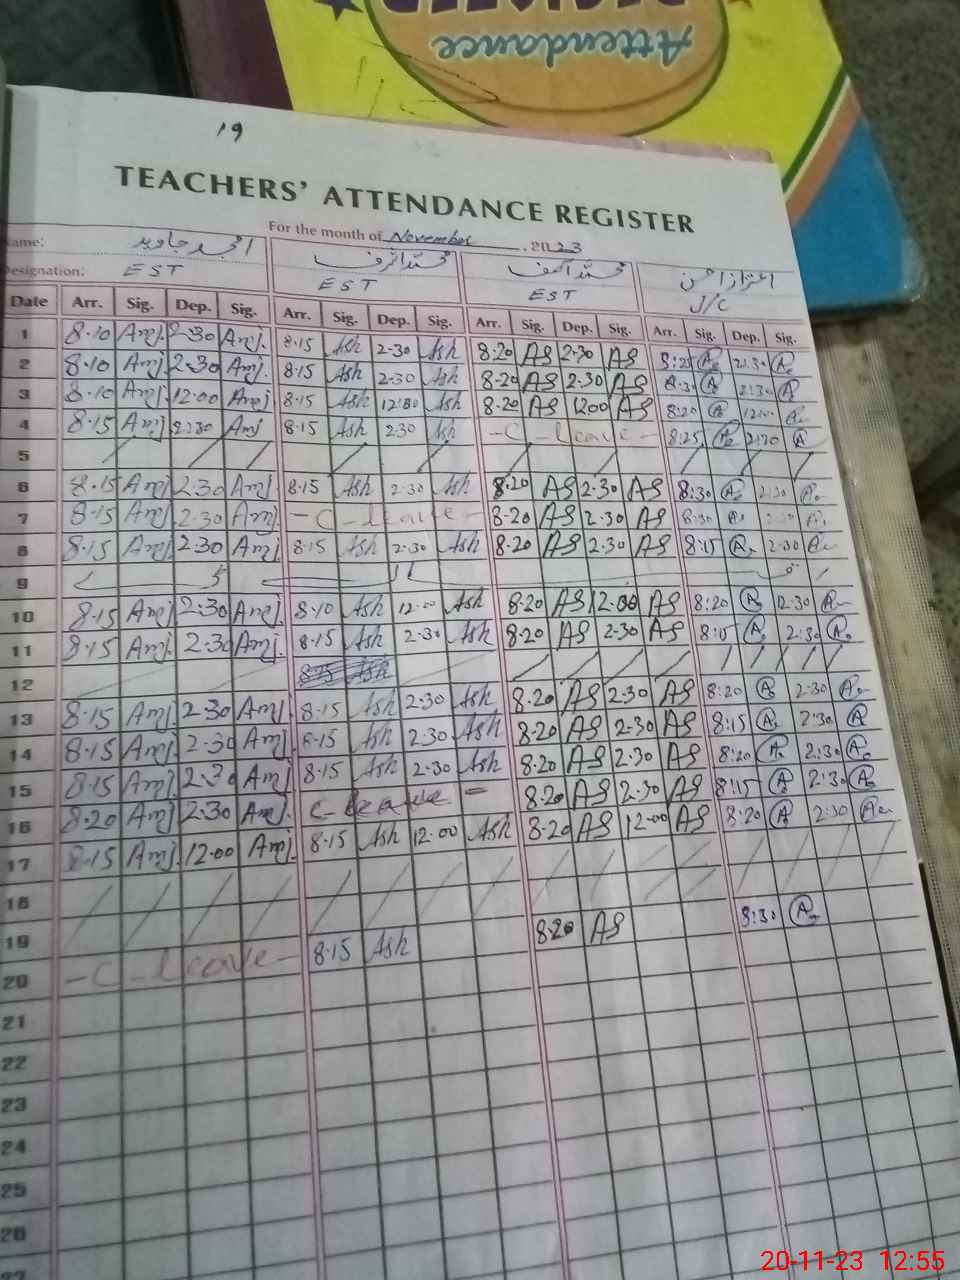 REGISTER
Attendance
19
TEACHERS' ATTENDANCE REGISTER
For the month of November, 2023
Name: امجد جاوید محمد اشرف محمد آصف اعتزاز احسن
Designation: EST EST EST J/C
Date Arr. Sig. Dep. Sig. Arr. Sig. Dep. Sig. Arr. Sig. Dep. Sig. Arr. Sig. Dep. Sig.
1 8·10 Amj. 2·30 Amj. 8·15 Ash 2·30 Ash 8·20 AS 2·30 AS 8:25 A 2:30 A
2 8·10 Amj. 2·30 Amj. 8·15 Ash 2·30 Ash 8·20 AS 2·30 AS 8:30 A 2:30 A
3 8·10 Amj. 12·00 Amj 8·15 Ash Ash 8·20 AS 1200 AS 8:20 A A
4 8·15 Amj 2:30 Amj 8·15 Ash 230 Ash -C-leave- 8:25 A A
5 / / / / / / / / / / / / / / / /
6 8·15 Amj 2·30 Amj 8·15 Ash 2·30 Ash 8·20 AS 2·30 AS 8:30 A 2:30 A
7 8·15 Amj. 2·30 Amj -C-leave- 8·20 AS 2·30 AS 8:30 A A
8 8·15 Amj. 2·30 Amj. 8·15 Ash 2·30 Ash 8·20 AS 2·30 AS 8:15 A 2:30 A
9
10 8·15 Amj 2:30 Amj. 8·10 Ash 12·00 Ash 8·20 AS 12·00 AS 8:20 A 12:30 A
11 8·15 Amj. 2·30 Amj. 8·15 Ash 2·30 Ash 8·20 AS 2·30 AS 8:15 A 2:30 A
12 8·15 Ash / / / / / / / /
13 8·15 Amj. 2·30 Amj. 8·15 Ash 2·30 Ash 8·20 AS 2·30 AS 8:20 A 2:30 A
14 8·15 Amj. 2·30 Amj. 8·15 Ash 2·30 Ash 8·20 AS 2·30 AS 8:15 A 2:30 A
15 8·15 Amj. 2·30 Amj. 8·15 Ash 2·30 Ash 8·20 AS 2·30 AS 8:20 A 2:30 A
16 8·20 Amj 2·30 Amj. C-leave - 8·20 AS 2·30 AS 8:15 A 2:30 A
17 8·15 Amj. 12:00 Amj. 8·15 Ash 12·00 Ash 8·20 AS 12·00 AS 8:20 A 2:30 A
18 / / / / / / / / / / / / / / / /
19
20 -C-leave- 8·15 Ash 8·20 AS 8:30 A
21
22
23
24
25
26
27
20-11-23 12:55